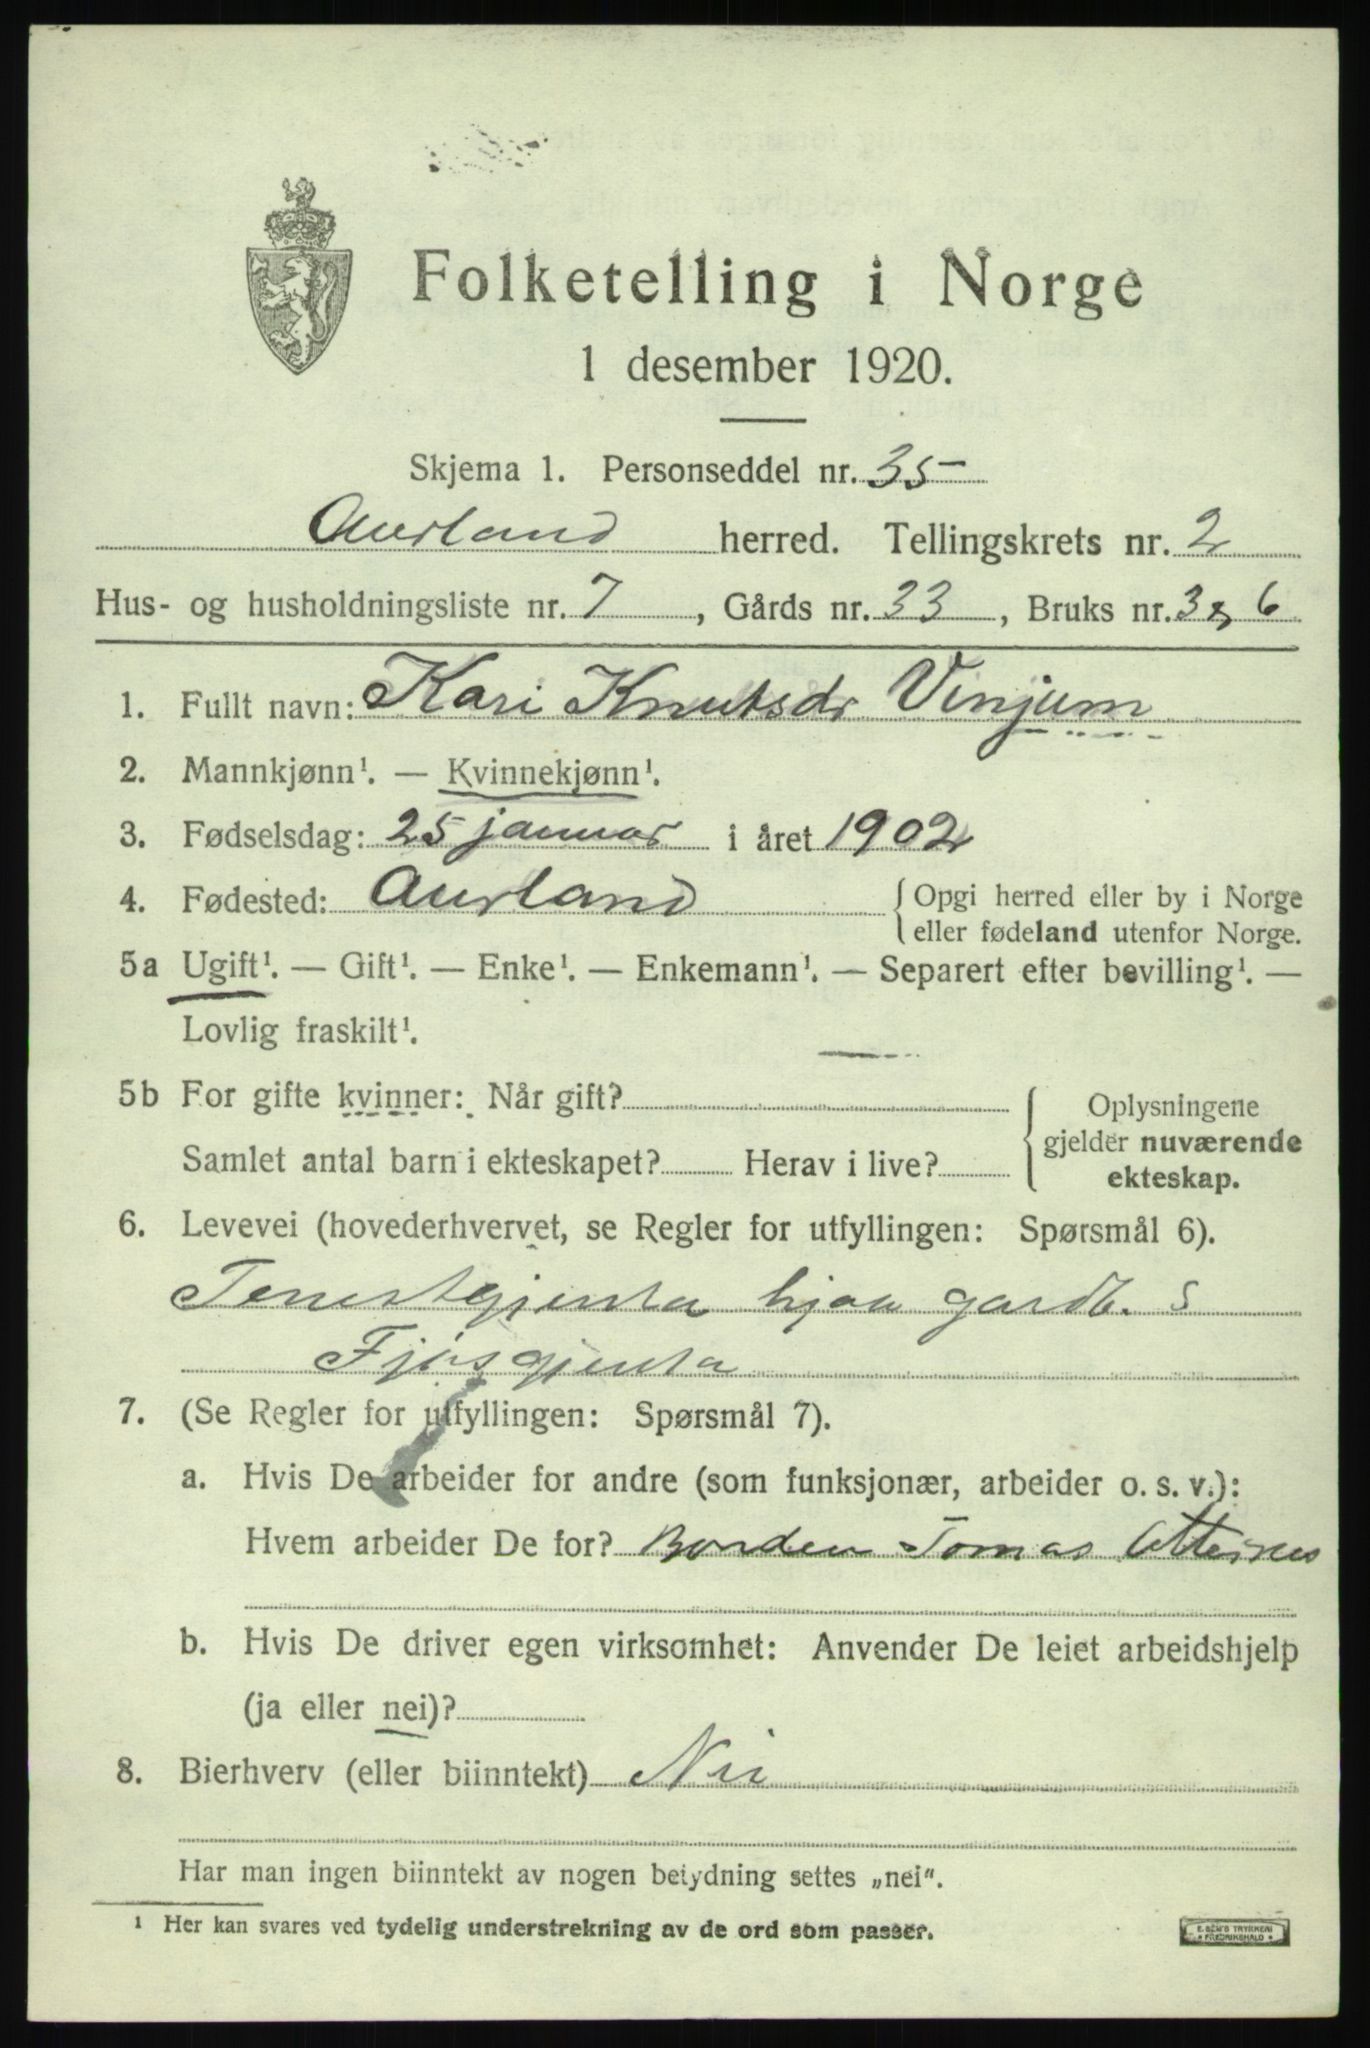 Folketelling i Norge
1 desember 1920.
Skjema 1. Personseddel nr. 35
Aurland herred. Tellingskrets nr. 2
Hus- og husholdningsliste nr. 7, Gårds nr. 33, Bruks nr. 3 & 6
1. Fullt navn: Kari Knutsdr Vinjum
2. Mannkjønn¹. — Kvinnekjønn¹.
3. Fødselsdag: 25 januar i året 1902
4. Fødested: Aurland { Opgi herred eller by i Norge
eller fødeland utenfor Norge.
5a Ugift¹. — Gift¹. — Enke¹. — Enkemann¹. — Separert efter bevilling¹. —
Lovlig fraskilt¹.
5b For gifte kvinner: Når gift? { Oplysningene
gjelder nuværende
Samlet antal barn i ekteskapet? Herav i live?
ekteskap.
6. Levevei (hovederhvervet, se Regler for utfyllingen: Spørsmål 6).
Tenestgjenta hjaa gardb. s
Fjøsgjenta
7. (Se Regler for utfyllingen: Spørsmål 7).
a. Hvis De arbeider for andre (som funksjonær, arbeider o. s. v.):
Hvem arbeider De for? Bonden Tomas Otternes
b. Hvis De driver egen virksomhet: Anvender De leiet arbeidshjelp
(ja eller nei)?
8. Bierhverv (eller biinntekt) Nei
Har man ingen biinntekt av nogen betydning settes „nei“.
¹ Her kan svares ved tydelig understrekning av de ord som passer.
E. SEM'S TRYKKERI
* FREDRIKSHALD *